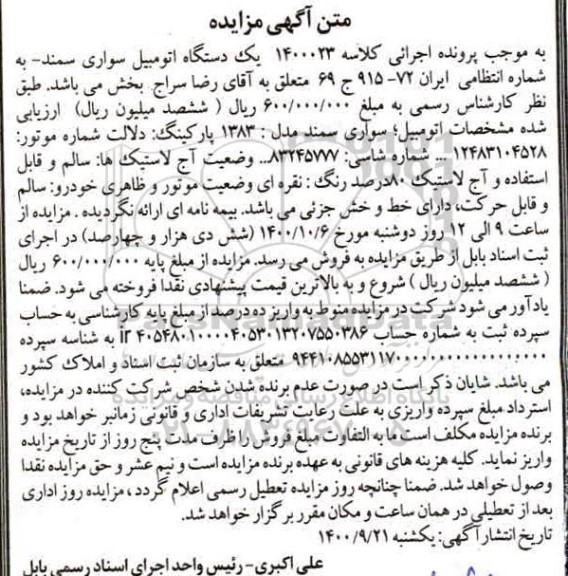 متن آگهی مزایده
به موجب پرونده اجرائی کلاسه ۱۴۰۰۰۲۳ یک دستگاه اتومبیل سواری سمند- به
شماره انتظامی ایران ۷۲- ۹۱۵ ج ۶۹ متعلق به آقای رضا سراج بخش می باشد. طبق
نظر کارشناس رسمی به مبلغ ۶۰۰/۰۰۰/۰۰۰ ریال ( ششصد میلیون ریال) ارزیابی
شده مشخصات اتومبیل؛ سواری سمند مدل : ۱۳۸۳ پارکینگ: دلالت شماره موتور:
۱۲۴۸۳۱۰۴۵۲۸ ... شماره شاسی: ۸۳۲۴۵۷۷۷... وضعیت آج لاستیک ها: سالم و قابل
استفاده و آج لاستیک ۸۰درصد رنگ : نقره ای وضعیت موتور و ظاهری خودرو: سالم
و قابل حرکت، دارای خط و خش جزئی می باشد. بیمه نامه ای ارائه نگردیده . مزایده از
ساعت ۹ الی ۱۲ روز دوشنبه مورخ ۱۴۰۰/۱۰/۶ (شش دی هزار و چهارصد) در اجرای
ثبت اسناد بابل از طریق مزایده به فروش می رسد. مزایده از مبلغ پایه ۶۰۰/۰۰۰/۰۰۰ ریال
( ششصد میلیون ریال ) شروع و به بالاترین قیمت پیشنهادی نقدا فروخته می شود. ضمنا
یادآور می شود شرکت در مزایده منوط به واریز ده درصد از مبلغ پایه کارشناسی به حساب
سپرده ثبت به شماره حساب ir ۴۰۵۴۸۰۱۰۰۰۰۴۰۵۳۰۱۳۲۰۷۵۵۰۳۸۶ به شناسه سپرده
متعلق به سازمان ثبت اسناد و املاک کشور
می باشد. شایان ذکر است در صورت عدم برنده شدن شخص شرکت کننده در مزایده،
استرداد مبلغ سپرده واریزی به علت رعایت تشریفات اداری و قانونی زمانبر خواهد بود و
برنده مزایده مکلف است مابه التفاوت مبلغ فروش را ظرف مدت پنج روز از تاریخ مزایده
واریز نماید. کلیه هزینه های قانونی به عهده برنده مزایده است و نیم عشر و حق مزایده نقدا
وصول خواهد شد. ضمنا چنانچه روز مزایده تعطیل رسمی اعلام گردد ، مزایده روز اداری
بعد از تعطیلی در همان ساعت و مکان مقرر برگزار خواهد شد.
تاریخ انتشار آگهی: یکشنبه ۱۴۰۰/۹/۲۱
علی اکبری- رئیس واحد اجرای اسناد رسمی بابل